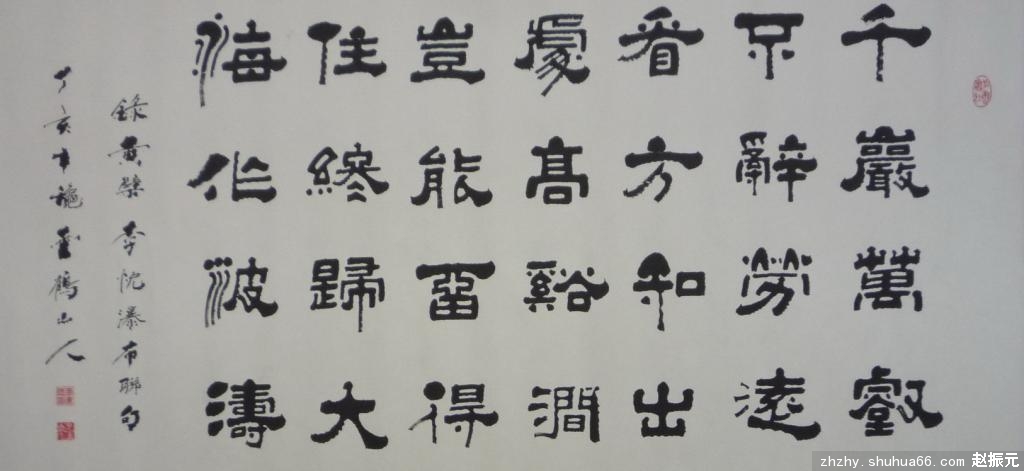 千巖萬壑
不辭勞遠
看方知出
處高谿澗
豈能留得
住終歸大
海作波濤
錄黃檗李忱瀑布聯句
丁亥年鶴山人
zhzhy.shuhua66.com 赵振元